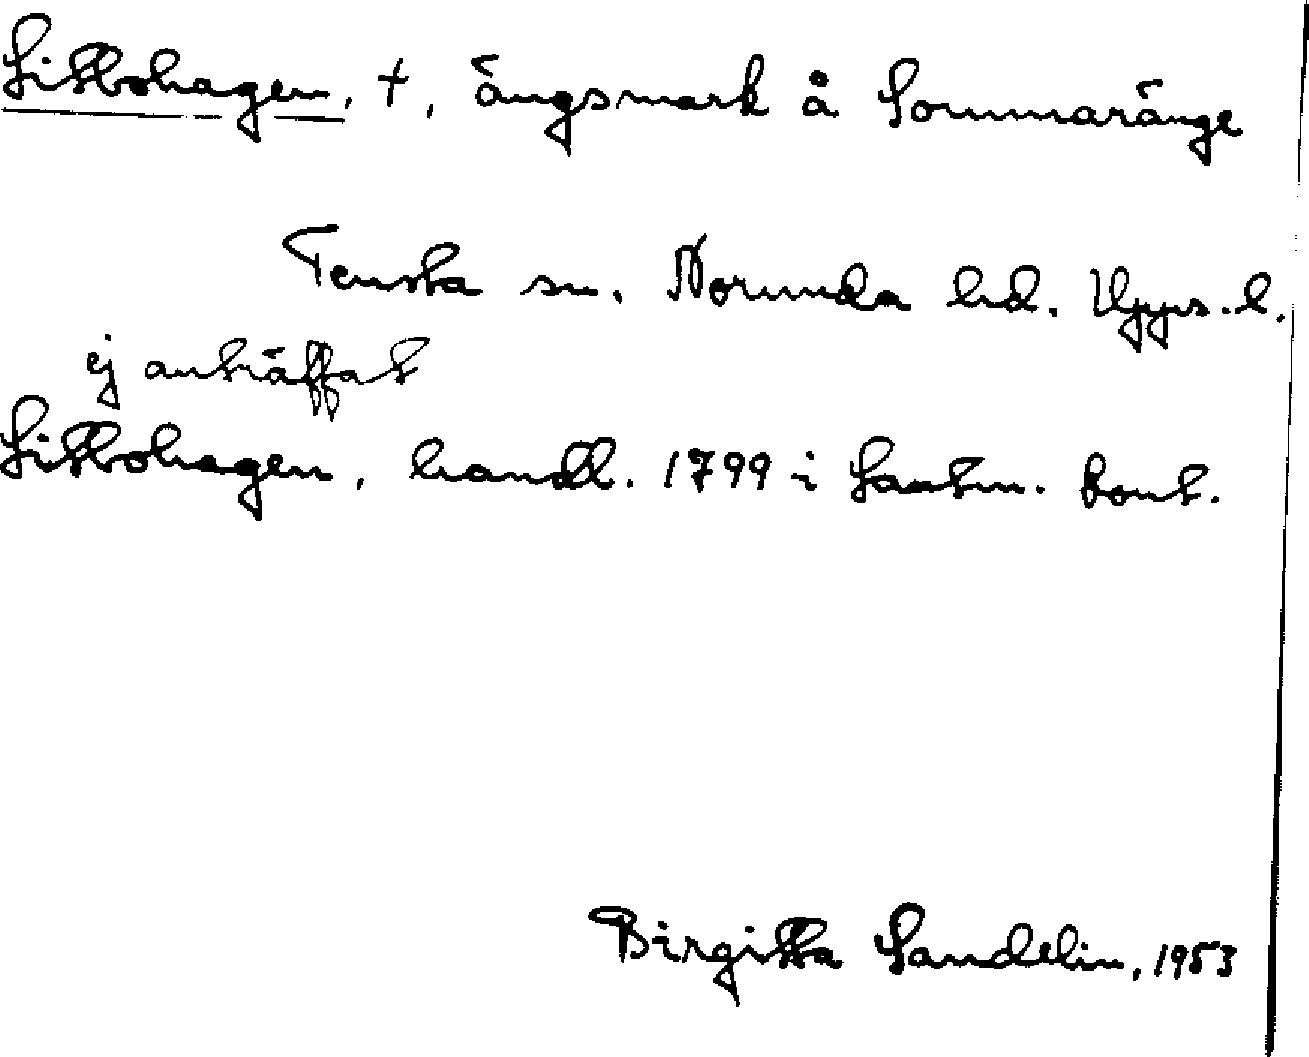 Littbohagen, †, ängsmark å Sommaränge
Tensta sn. Norunda hd. Upps. l.
ej anträffat
Littbohagen, handl. 1799 i Lantm. kont.
Birgitta Sandelin, 1953